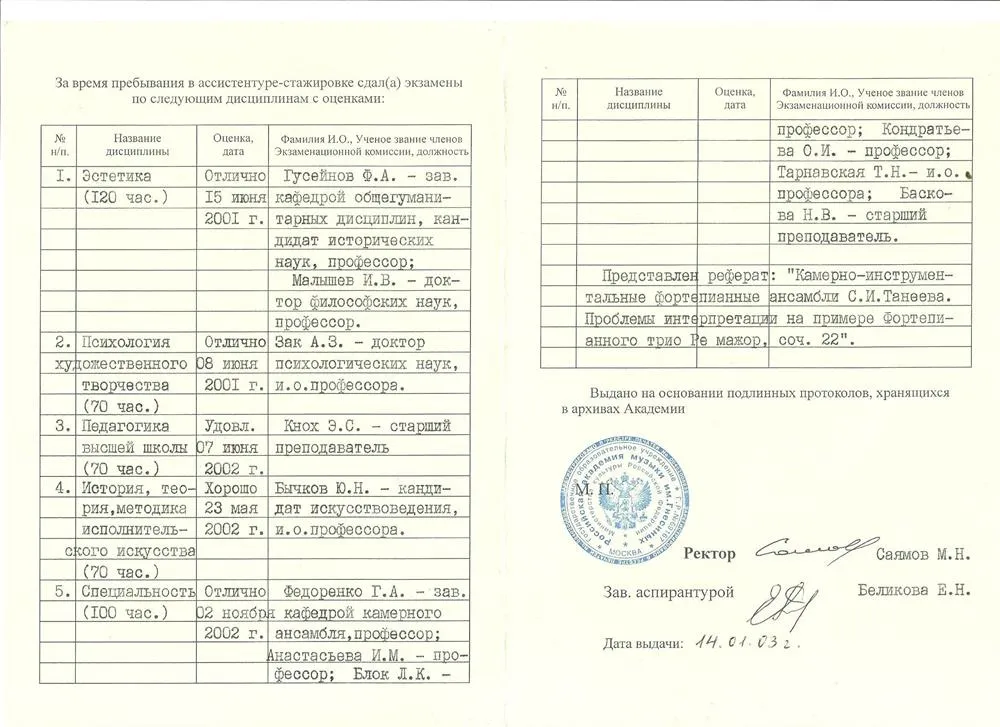 За время пребывания в ассистентуре-стажировке сдал(а) экзамены
по следующим дисциплинам с оценками:
№ н/п. Название дисциплины Оценка, дата Фамилия И.О., Ученое звание членов Экзаменационной комиссии, должность
1. Эстетика Отлично Гусейнов Ф.А. - зав.
(120 час.) 15 июня кафедрой общегумани-
2001 г. тарных дисциплин, кан-
дидат исторических
наук, профессор;
Малышев И.В. - док-
тор философских наук,
профессор.
2. Психология Отлично Зак А.З. - доктор
художественного 08 июня психологических наук,
творчества 2001 г. и.о.профессора.
(70 час.)
3. Педагогика Удовл. Кнох Э.С. - старший
высшей школы 07 июня преподаватель
(70 час.) 2002 г.
4. История, тео- Хорошо Бычков Ю.Н. - канди-
рия,методика 23 мая дат искусствоведения,
исполнитель- 2002 г. и.о.профессора.
ского искусства
(70 час.)
5. Специальность Отлично Федоренко Г.А. - зав.
(100 час.) 02 ноября кафедрой камерного
2002 г. ансамбля,профессор;
Анастасьева И.М. - про-
фессор; Блок Л.К. -
№ н/п. Название дисциплины Оценка, дата Фамилия И.О., Ученое звание членов Экзаменационной комиссии, должность
профессор; Кондратье-
ва О.И. - профессор;
Тарнавская Т.Н.- и.о.
профессора; Баско-
ва Н.В. - старший
преподаватель.
Представлен реферат: "Камерно-инструмен-
тальные фортепианные ансамбли С.И.Танеева.
Проблемы интерпретации на примере Фортепи-
анного трио Ре мажор, соч. 22".
Выдано на основании подлинных протоколов, хранящихся
в архивах Академии
Российская академия музыки им.Гнесиных
Министерство культуры Российской Федерации
МОСКВА
М. П.
Ректор Саямов М.Н.
Зав. аспирантурой Беликова Е.Н.
Дата выдачи: 14.01.03 г.